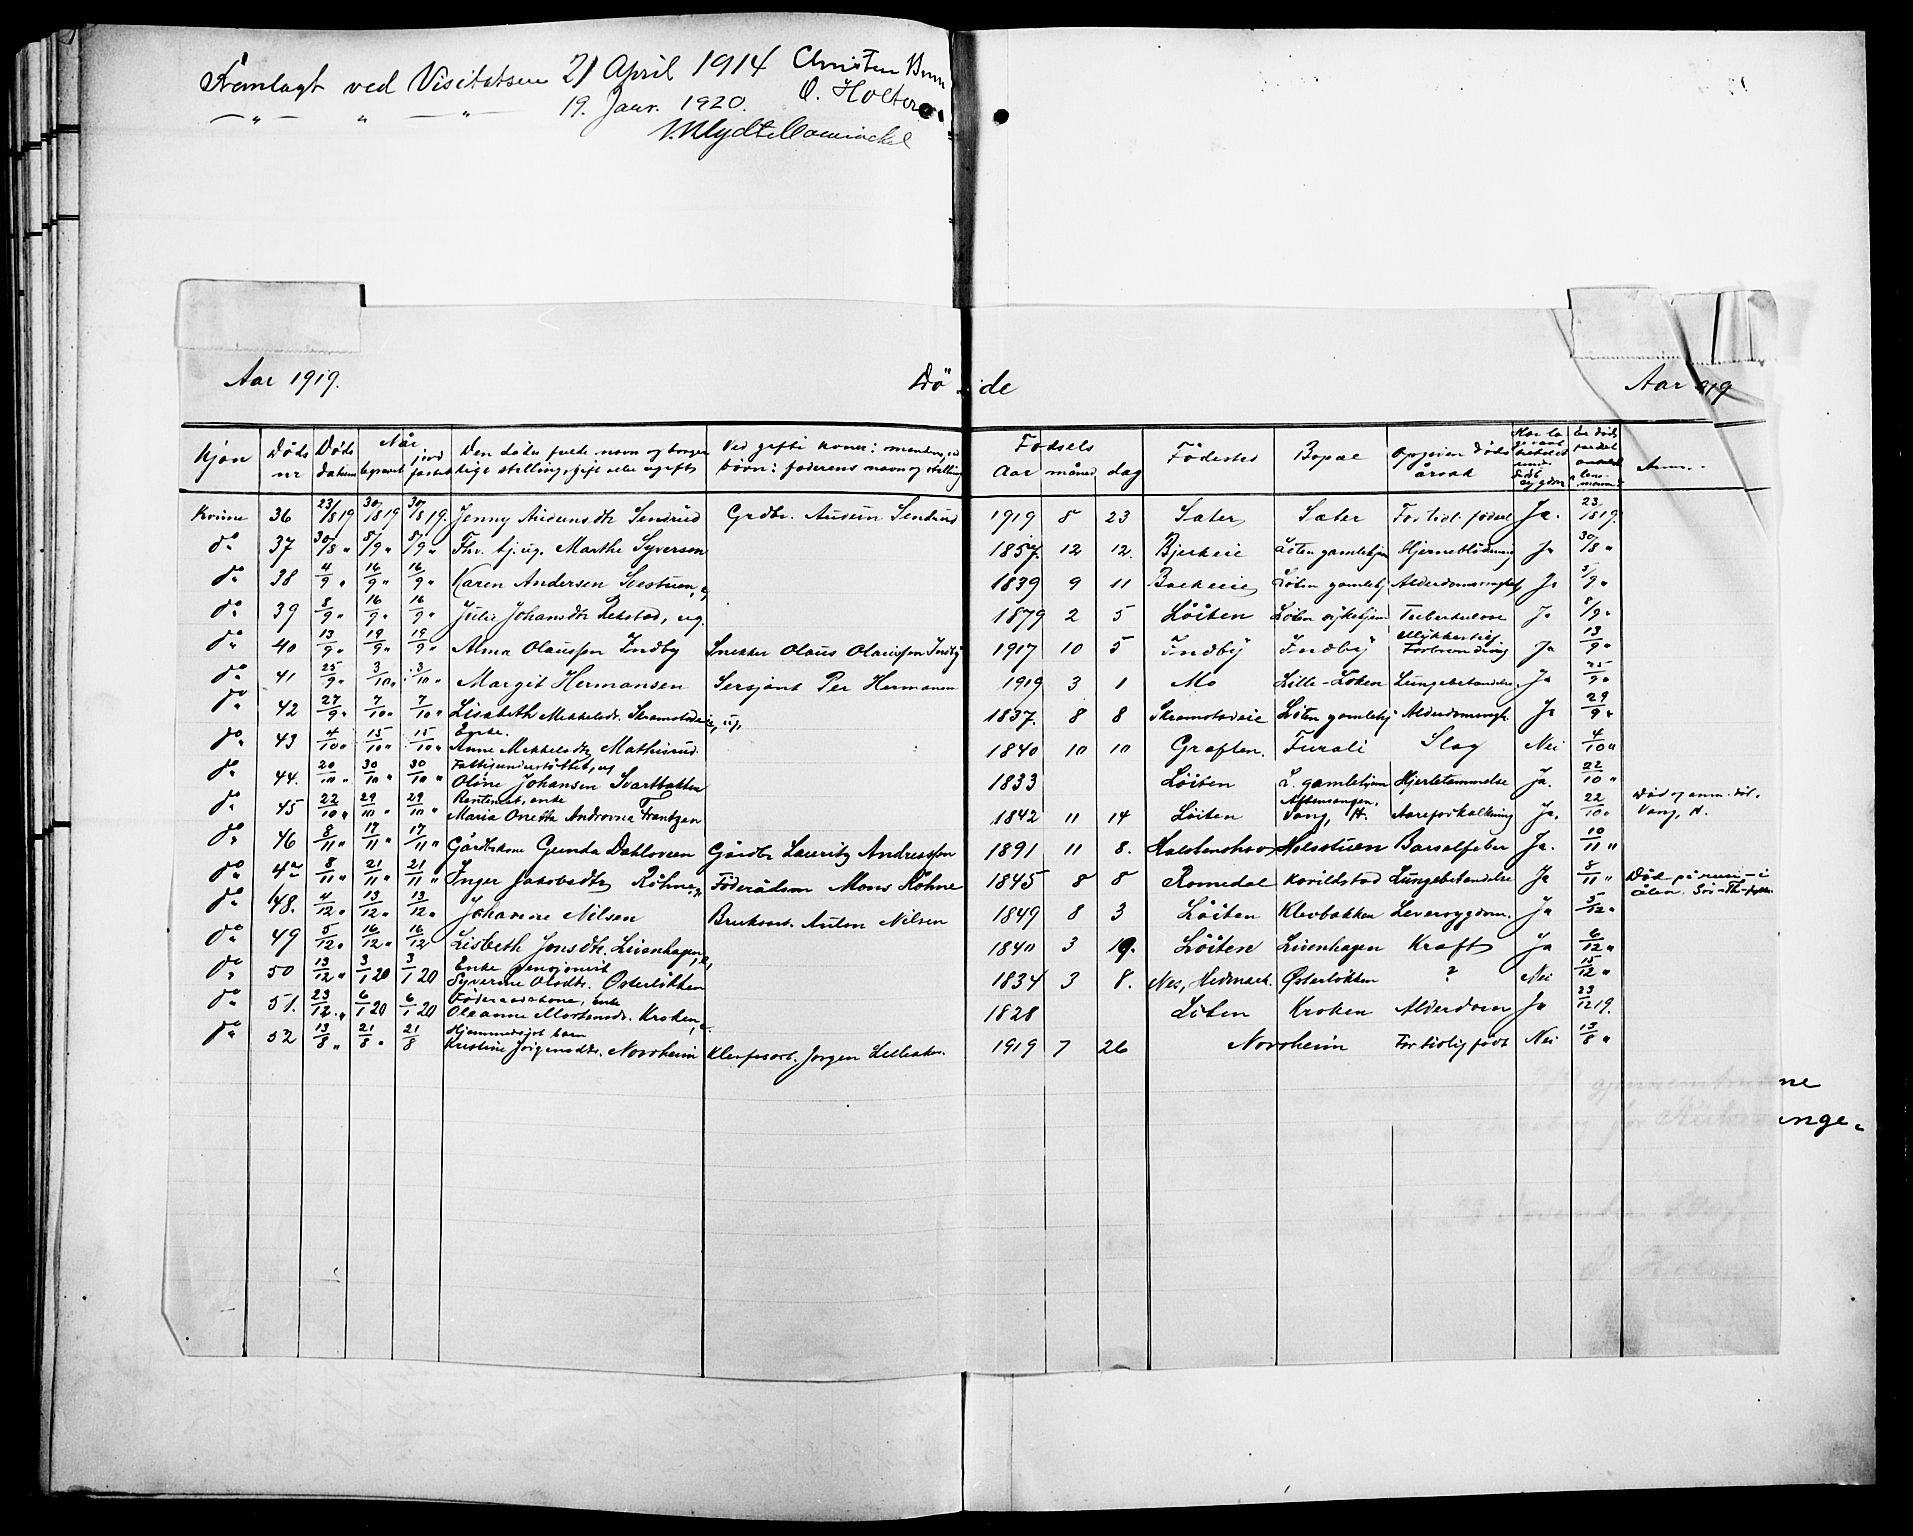 Fremlagt ved Visitatsen 21 April 1914 Christen
— " — " — " — 19. Janr. 1920. O. Holter
Aar 1919. Døde Aar 1919
Kjøn Døds nr Døds datum Når begravet jord fæstet Den dødes fulde navn og borgerlige stilling, gift eller ugift Ved gifte koner: mandens, ved børn: faderens navn og stilling Fødsels Aar måned dag Fødested Bopæl Opgiven Døds årsak Anm.
Kvinne 36 23/8 19 30/8 19 30/8 19. Jenny Audensdtr Sendrud Grdbr. Auden Sendrud 1919 8 23 Sæter Sæter For tidl. födsel Ja. 23/8 19.
do 37 30/8 " 8/9 " 8/9 " Fhv. tj. ug. Marthe Syversen 1857. 12 12. Bjerkeie Löten gamlehjem Hjerneblödning Ja 30/8 "
do 38 4/9 " 16/9 " 16/9 " Karen Andersen 1839 9 11 Bækkeeie Löten gamlehj Ja
do 39 8/9 " 16/9 " 16/9 " Julie Johansdtr Rekstad, ug. 1879 2 5 Löiten Löten sykehjem Tuberkulose Ja 8/9 "
do 40 13/9 " 19/9 " 19/9 " Alma Olaussen Indby Snekker Olaus Olaussen Indby 1917 10 5 Indby Indby Ulykkestilf. Forbrending Ja 13/9 "
do 41 25/9 " 3/10 " 3/10 " Margit Hermansen Sersjant Per Hermansen 1919 3 1 Mo Lille-Löken Lungebetændelse Ja 25/9 "
do 42 27/9 " 7/10 " 7/10 " Lisabeth Mekkelsdt. Skramstadeie, ug. 1837. 8 8 Skramstadeie Löten gamlehj Alderdomssvagh. Ja 29/9 "
do 43 4/10 " 15/10 " 15/10 " Enke. Anne Mekkelsdtr Mathisrud 1840 10 10 Graften. Furuli Slag Nei 4/10 "
do 44. 20/10 " 30/10 " 30/10 " Fattigunderstöttet, ug Oline Johansen Svartbakken 1833 Löiten L. gamlehjem Hjertelammelse Ja. 22/10 "
do 45 22/10 " 29/10 " 29/10 " Rentenist, enke Maria Onette Androvne Frantzen 1842 11 14 Löiten Aftensangen, Vang, H. Aareforkalkning Ja. 22/10 " Död og anm. död. Vang, H.
do 46 8/11 " 17/11 " 17/11 " Gårdbrkone Gunda Dahlsveen Gårdbr Lauritz Andreassen 1891 11 8. Halstenshov Holsstuen Barselfeber Ja. 10/11 "
do 47 8/11 " 21/11 " 21/11 " Inger Jakobsdtr Röhne Föderådsm Mons Röhne 1845 8 8 Romedal Karildstad Lungebetændelse Ja 8/11 " Död på reise i Ålen. Sör-Th-fylke
do 48. 4/12 " 13/12 " 13/12 " Johanne Nilsen Bruksarb. Anton Nilsen 1849 8 3 Löiten Klevbakken Leversygdom. Ja 5/12 "
do 49 5/12 " 16/12 " 16/12 Lisbeth Jonsdtr. Lienhagen, e, 1840 3 19. Löiten Lienhagen Kræft Ja 6/12 "
do 50 13/12 " 3/1 20 3/1 20 Enke pensjonist Syverine Olsdtr. Österlökken 1834 3 8. Nes, Hedmark Österlökken ? Nei 15/12 "
do 51. 23/12. " 6/1 20 6/1 20 Föderaadskone, enke Oleanne Mortensdt. Kroken, e. 1828 Löten Kroken Alderdom Ja 23/12 19.
do 52 13/8 " 21/8 " 21/8 Hjemmedöpt barn Kristine Jörgensdtr. Norrheim Jorgen 1919 7 26 Norrheim For tidlig født Nei 13/8 "
ne
nge.